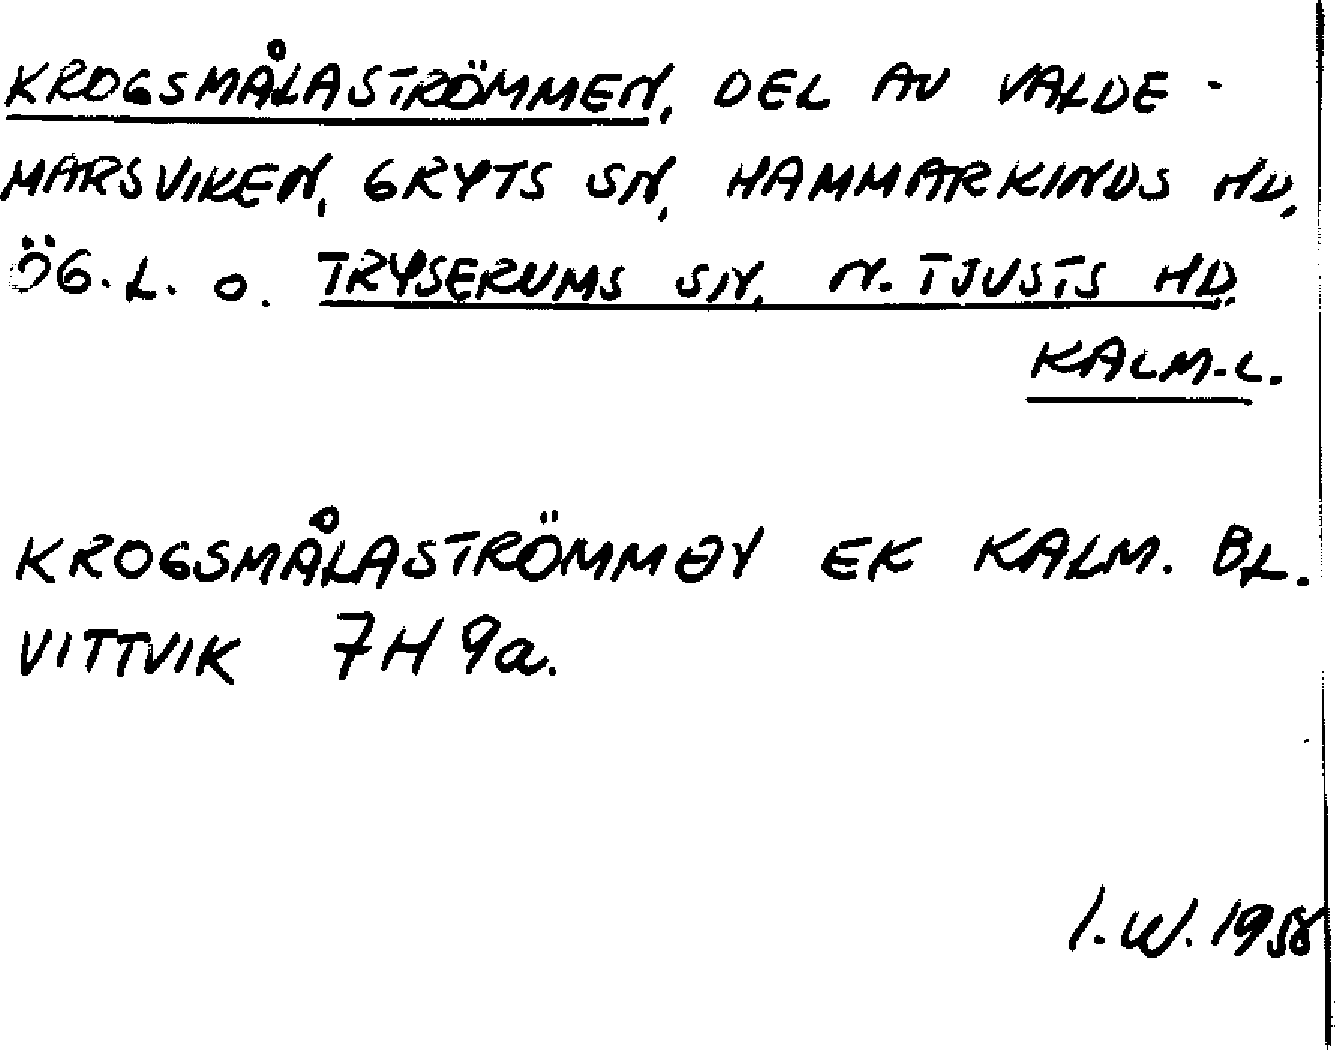 KROGSMÅLASTRÖMMEN, DEL AV VALDE-
MARSVIKEN, GRYTS SN, HAMMARKINDS HD,
ÖG.L. O. TRYSERUMS SN, N. TJUSTS HD.
KALM.L.
KROGSMÅLASTRÖMMƏN EK KALM. BL.
VITTVIK 7H9a.
I.W. 1958